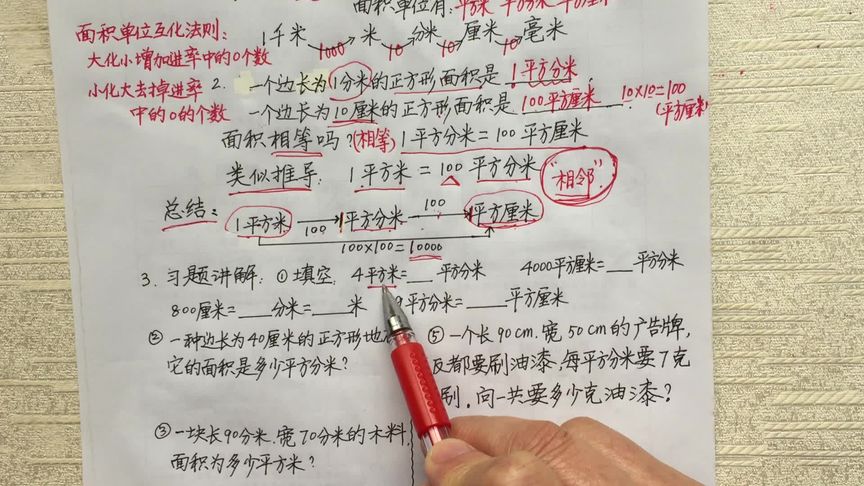 面积单位有:平方米 平方分米 平方厘米
面积单位互化法则:
大化小增加进率中的0个数
小化大去掉进率
中的0的个数
1千米 米 分米 厘米 毫米
1000 10 10 10
2. 一个边长为1分米的正方形面积是1平方分米.
一个边长为10厘米的正方形面积是100平方厘米
10×10=100
(平方厘米)
面积相等吗?(相等)1平方分米=100平方厘米
类似推导: 1平方米=100平方分米 "相邻"
总结: 1平方米 100 1平方分米 100 1平方厘米
100×100=10000
3. 习题讲解: ①填空. 4平方米=__平方分米 4000平方厘米=__平方分米
800厘米=__分米=__米 9平方分米=__平方厘米
②一种边长为40厘米的正方形地
它的面积是多少平方分米?
⑤一个长90cm.宽50cm的广告牌,
反都要刷油漆,每平方分米要7克
刷,问一共要多少克油漆?
③一块长90分米.宽70分米的木料,
面积为多少平方米?